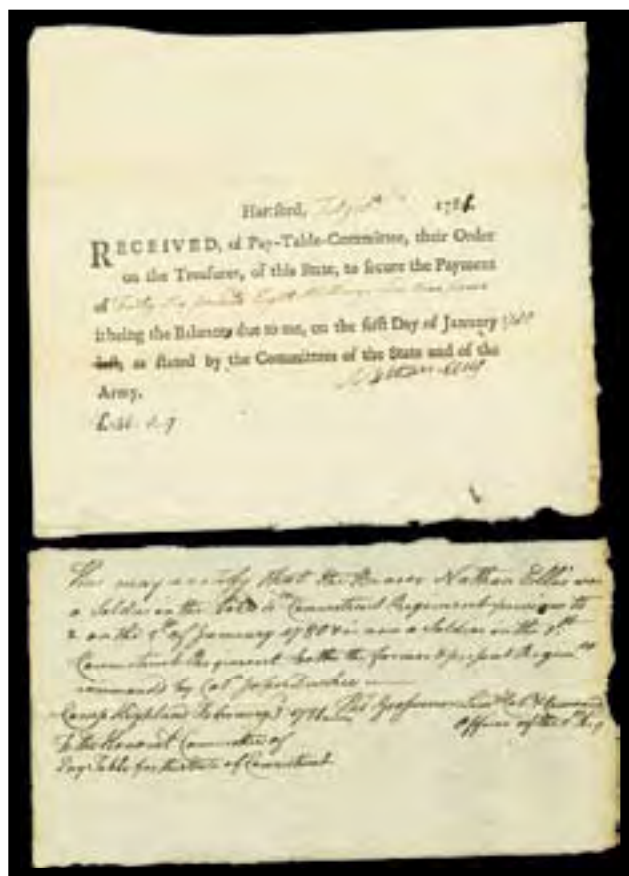 Hartford, 1781.
RECEIVED, of Pay-Table-Committee, their Order
on the Treasurer, of this State, to secure the Payment
of Eight
it being the Balances due to me, on the first Day of January 1780
last, as stated by the Committees of the State and of the
Army.
Nathan Ellis
This may certify that the Bearer Nathan Ellis was
a Soldier in the 4th Connecticut Regiment previous to
& on the 1st of January 1780 & is now a Soldier in the 1st
Connecticut Regiment both the former & present Regimts
commanded by Col John Durkee
Camp Highland February 1781 Grosvenor Lieut Col
Officer of the
To the Committee of
Pay Table for the State of Connecticut